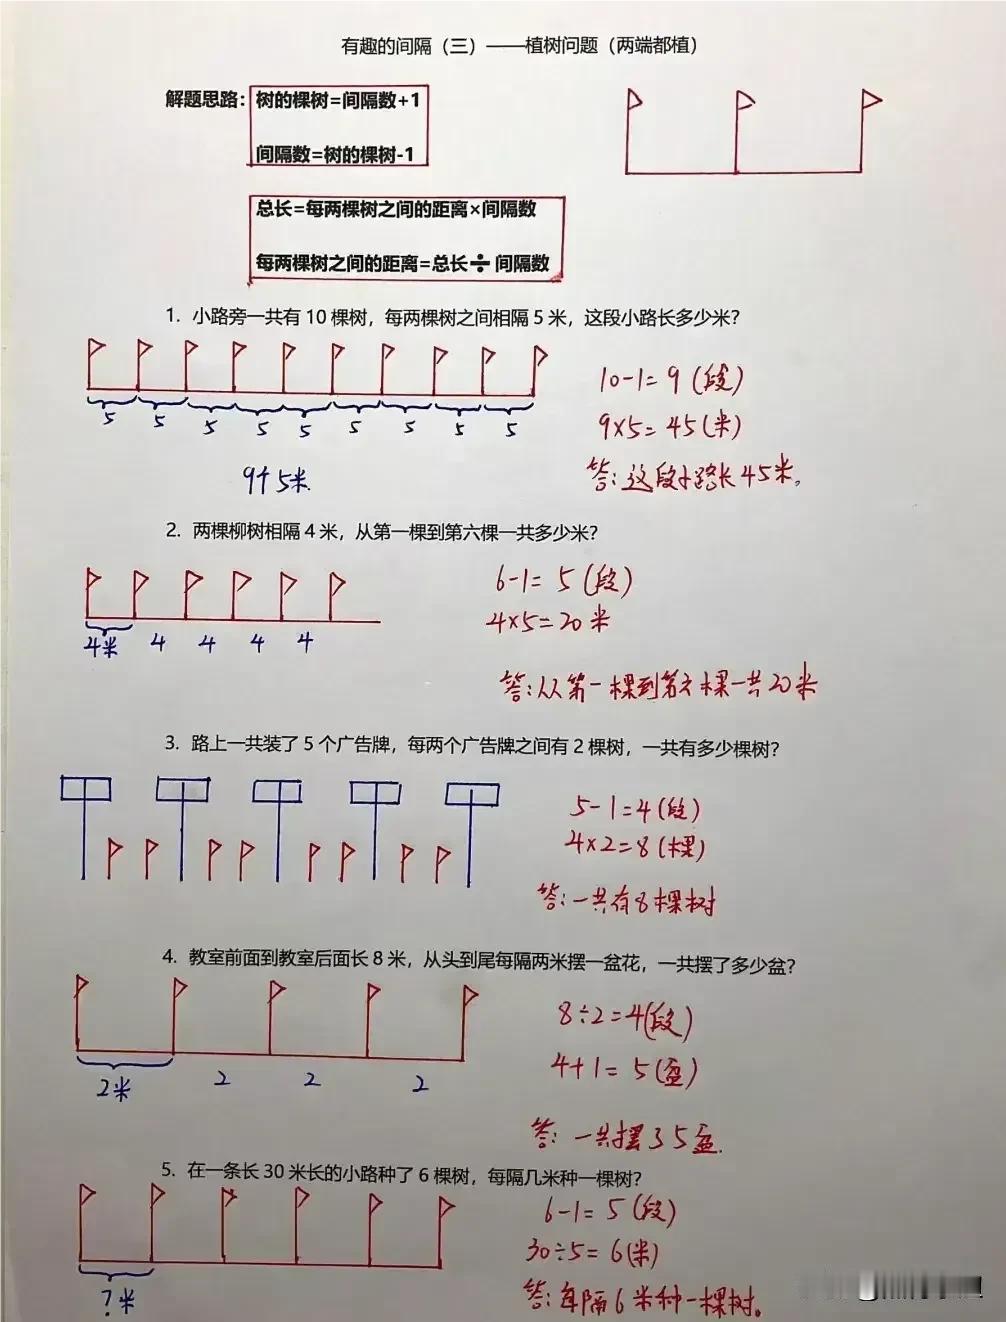 有趣的间隔（三）——植树问题（两端都植）
解题思路：树的棵树=间隔数+1
间隔数=树的棵树-1
总长=每两棵树之间的距离×间隔数
每两棵树之间的距离=总长÷间隔数
1. 小路旁一共有 10 棵树，每两棵树之间相隔 5 米，这段小路长多少米？
10-1=9(段)
9×5=45(米)
5 5 5 5 5 5 5 5 5
9个5米.
答:这段小路长45米。
2. 两棵柳树相隔 4 米，从第一棵到第六棵一共多少米？
6-1=5(段)
4×5=20米
4米 4 4 4 4
答:从第一棵到第六棵一共20米
3. 路上一共装了 5 个广告牌，每两个广告牌之间有 2 棵树，一共有多少棵树？
5-1=4(段)
4×2=8(棵)
答:一共有8棵树
4. 教室前面到教室后面长 8 米，从头到尾每隔两米摆一盆花，一共摆了多少盆？
8÷2=4(段)
4+1=5(盆)
2米 2 2 2
答:一共摆了5盆.
5. 在一条长 30 米长的小路种了 6 棵树，每隔几米种一棵树？
6-1=5(段)
30÷5=6(米)
?米
答:每隔6米种一棵树。